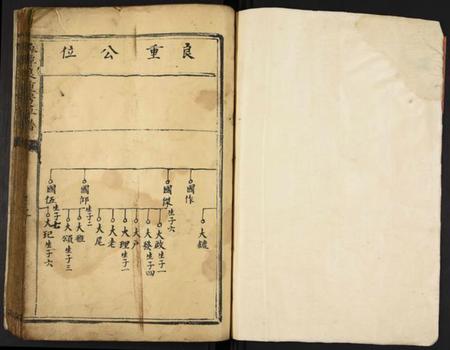 良重公位
國作
國保生子六
國卿生子二
國伍生子七
大鑣
大政生子一
大發生子四
大戶
大理生子一
大老
大尾
大雅
大頌生子三
大玘生子六